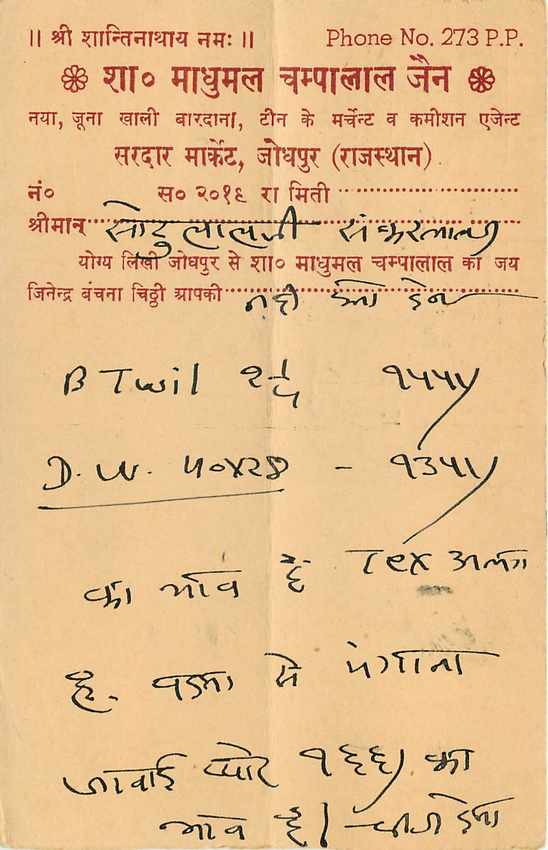 || श्री शान्तिनाथाय नमः || Phone No. 273 P.P.
शा० माधुमल चम्पालाल जैन
नया, जूना खाली बारदाना, टीन के मर्चेन्ट व कमीशन एजेन्ट
सरदार मार्केट, जोधपुर (राजस्थान)
नं० स० २०१६ रा मिती
श्रीमान् सोटुलालजी संकरलालजी
योग्य लिखी जोधपुर से शा० माधुमल चम्पालाल का जय
जिनेन्द्र बंचना चिठ्ठी आपकी नही
B Twil १५५५)
D. W. ५०x२८ - १३५५)
का भाव है Tex अलग
है. से मंगाना
१६६) का
भाव है।